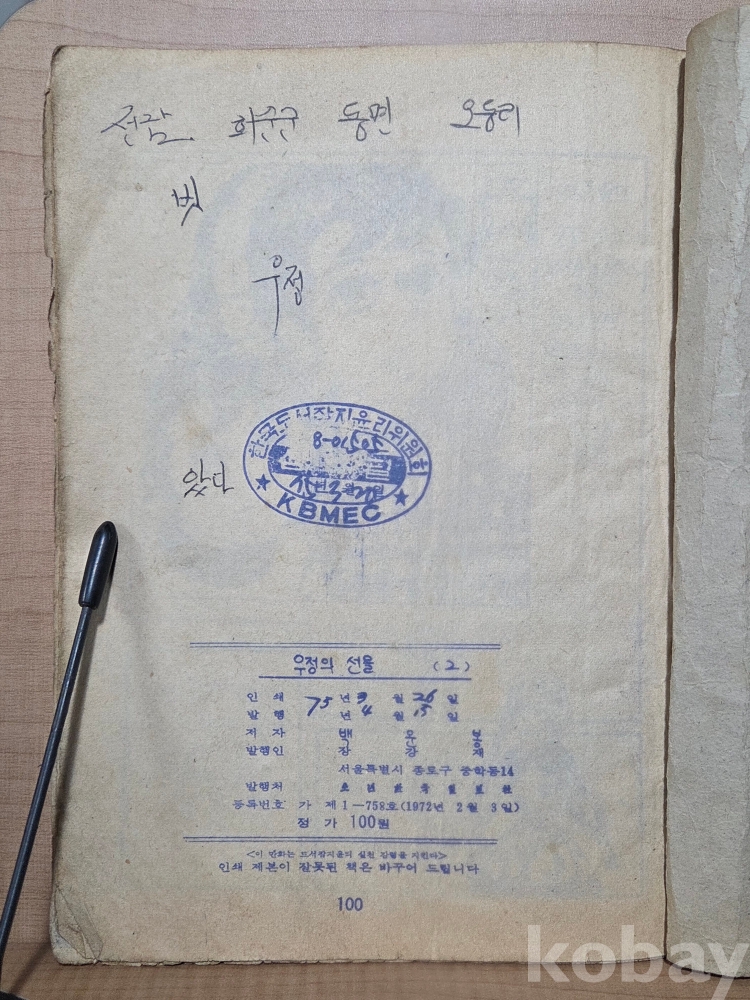 전남 화순군 동면 오동리
벗
우정
았다
한국도서잡지윤리위원회
8-01505
KBMEC
우정의 선물 (2)
인쇄 75년 3월 26일
발행 년 4월 15일
저자 백운봉
발행인 장강재
서울특별시 종로구 중학동14
발행처 소년한국일보
등록번호 가 제1—758호(1972년 2월 3일)
정가 100원
<이 만화는 도서잡지윤리 실천 강령을 지킨다>
인쇄 제본이 잘못된 책은 바꾸어 드립니다
100
kobay